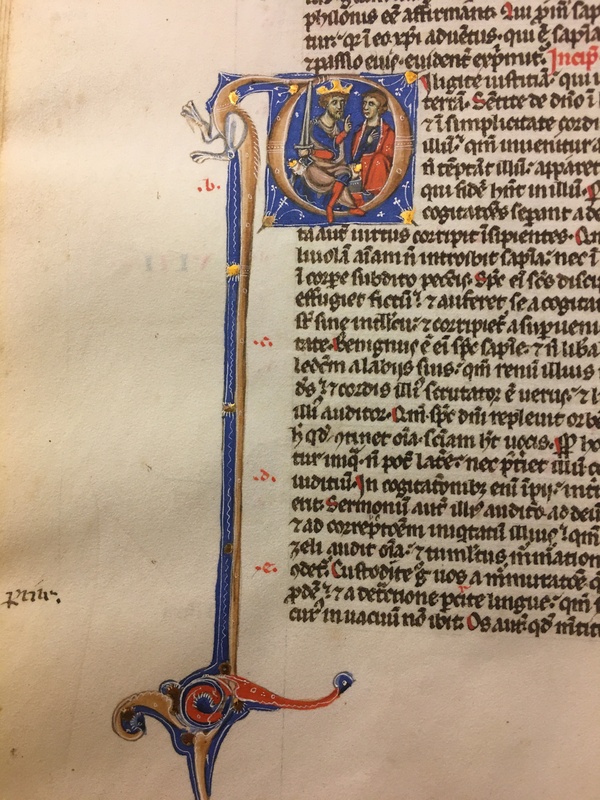 philonis eē affirmant. Qui ꝓm̄ sap
tur. qꝛ ī eo xp̄i aduētus. qui ē sapīa
⁊ passio eius euidēnt exp̄mit. Incip
D iligite iustitiā qui i
terrā. Sētite de dn̄o ī b
⁊ ī simplicitate cordi
illū. qm̄ inuenitur a
n̄ tēptāt illū. apparet
qui fidē hn̄t in illū. P
cogitatōes seꝑant a de
ta aut̄ uirtus corripit īsipientes. Qm̄
liuolā aīam n̄ introibit sapīa. nec ī
ī corꝑe subdito pcc̄is. Sp̄c eī sc̄s disci
effugiet fictū ⁊ auferet se a cogitat
st̄ sine intllc̄u. ⁊ corripiet̄ a suꝑueni
tate. Benignus ē eī sp̄c sapīe. ⁊ n̄ liba
ledc̄m a labijs suis. qm̄ renū illius
ds̄. ⁊ cordis illi' scrutator ē uerus. ⁊ l
illi' auditor. Qm̄ sp̄c dn̄i repleuit orbē
h̄ qd̄ ꝯtinet oīa. sciam̄ ht̄ uocis. Pp̄ ho
tur iniq̄. n̄ pot̄ late. nec p̄tiet illū co
iuditiū. In cogitatōnibꝫ enī īpij. int̄
erit. Sermonū aut̄ illi' auditō. ad deū
⁊ ad correptōem iniqtatū illius. qm̄
zeli audit oīa. ⁊ tumltus
det̄. Custodite ḡ uos a murmuratōe q̄
ꝓdē. ⁊ a detᷓctione ꝑcite lingue. qm̄ s
cur' in uacuū nō ibit. Os aut̄. qd̄ mētit
.b.
.c.
.d.
.e.